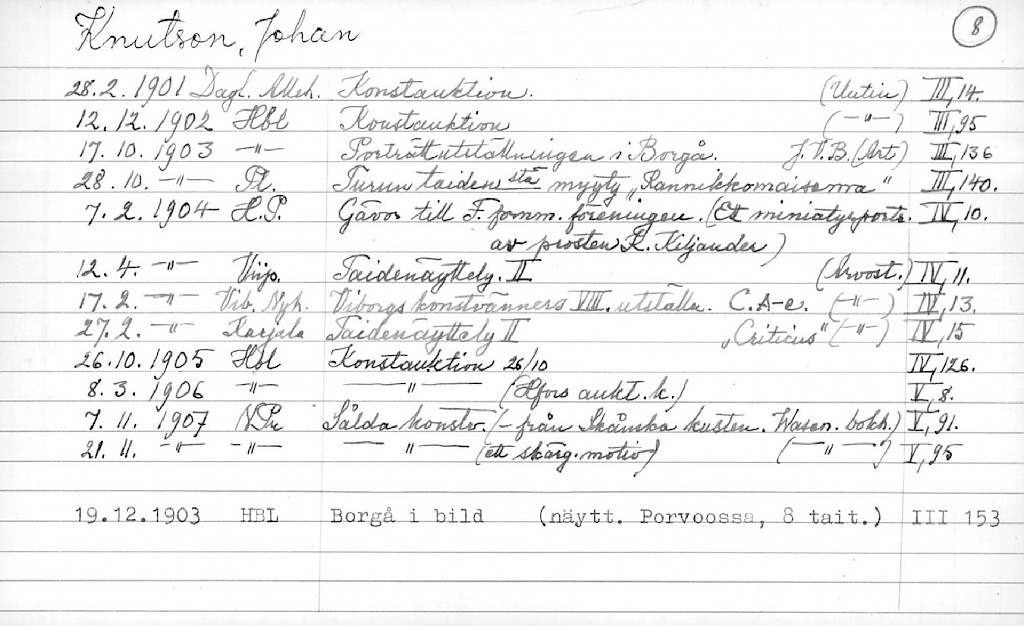 Knutson, Johan 8
28.2.1901 Dagl. Alleh. Konstauktion. (Uutin) III, 14.
12.12.1902 Hbl Konstauktion (-"-) III, 95
17.10.1903 -"- Porträttutställningen i Borgå. J.V.B. (Art) III, 136
28.10. -"- Pl. Turun taiden stä myyty „Rannikkomaisema" III, 140.
7.2.1904 H.P. Gåvor till F. fornm. föreningen. (Ett miniatyrportr. IV, 10.
av prosten R. Kiljander)
12.4. -"- Viip. Taidenäyttely. II (Arvost.) IV, 11.
17.2. -"- Vib. Nyh. Viborgs konstvänners VIII. utställn. C.A-e. (-"-) IV, 13.
27.2. -"- Karjala Taidenäyttely II „Criticus" (-"-) IV, 15
26.10.1905 Hbl Konstauktion 26/10 IV, 126.
8.3.1906 -"- -"- (Hfors aukt.k.) V, 8.
7.11.1907 N.Pr Sålda konstv. (- från Skånska kusten. Wasen. bokh.) V, 91.
21.11. -"- -"- -"- (ett skärg. motiv) (-"-) V, 95
19.12.1903 HBL Borgå i bild (näytt. Porvoossa, 8 tait.) III 153